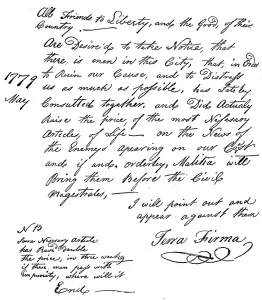 All Friends to Liberty, and the Good, of their
Country.
Are Desired to take Notice, that
there is men in this City, that, in Order
to Ruin our Cause, and to Distress
us as much as possible, has Lately
Consulted together, and Did Actually
Raise the price, of the most Nessasary
Articles, of Life— on the News of
the Enemys apearing on our Cost
and if and, orderley, Malitia will
Bring them Before the Civil
Magistrates,—
I will point out and
appear against them
Terra Firma
1779
May
N B
Some Nessary article
has Rised Double
the price, in three weeks
if these men pass with
impunity, where will it
End—